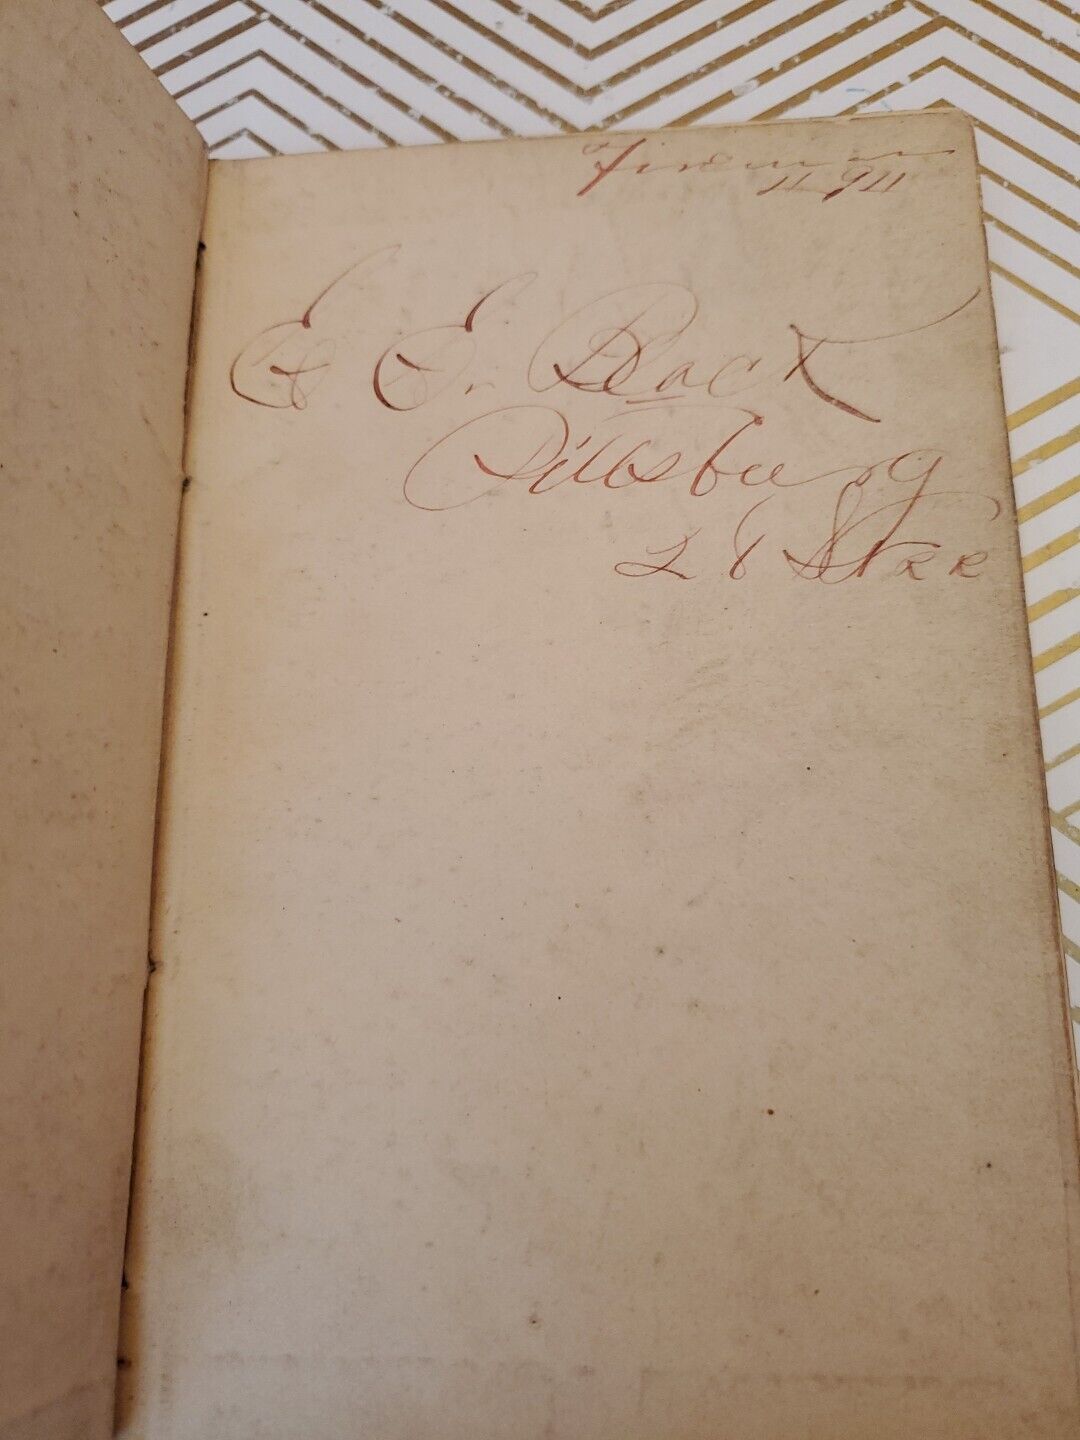 Fireman
11 911
E E. Black
Pittsburg
28 Stree